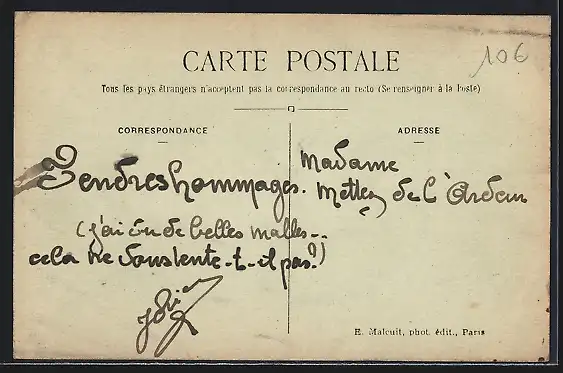 106
CARTE POSTALE
Tous les pays étrangers n'acceptent pas la correspondance au recto (Se renseigner à la Poste)
CORRESPONDANCE
ADRESSE
Madame
Tendres hommages.
de l'Ardeur
(j'ai vu de belles malles..
cela ne vous tente-t-il pas?)
E. Malcuit, phot. édit., Paris